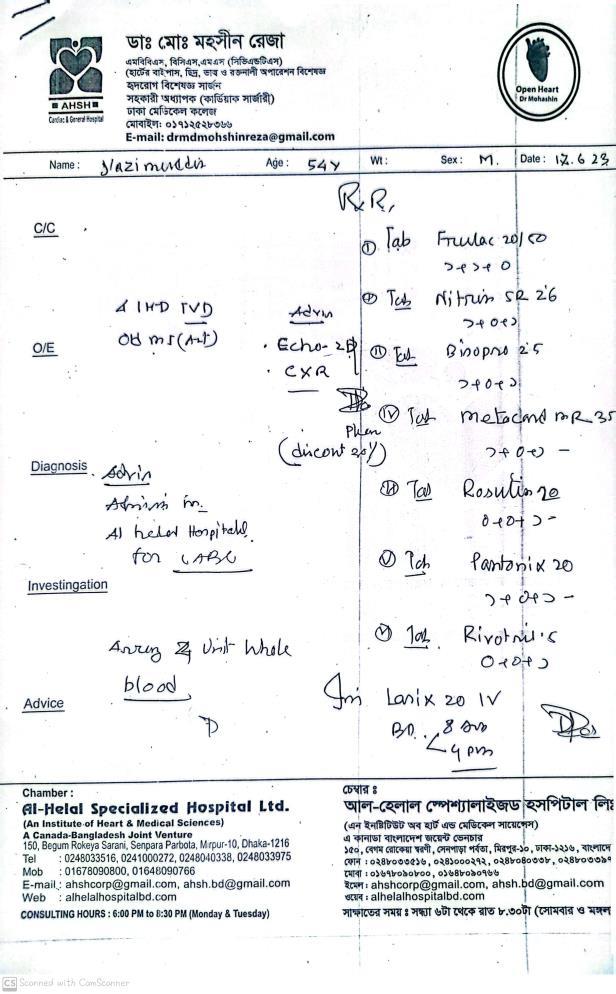 AHSH
Cardiac & General Hospital
ডাঃ মোঃ মহসীন রেজা
এমবিবিএস, বিসিএস,এমএস (সিভিএন্ডটিএস)
(হার্টের বাইপাস, ছিদ্র, ভাল্ব ও রক্তনালী অপারেশন বিশেষজ্ঞ
হৃদরোগ বিশেষজ্ঞ সার্জন
সহকারী অধ্যাপক (কার্ডিয়াক সার্জারী)
ঢাকা মেডিকেল কলেজ
মোবাইল: ০১৭১২৫২৮৩৬৬
E-mail: drmdmohshinreza@gmail.com
Open Heart
Dr Mohashin
Name : Nazimuddin Age : 54Y Wt : Sex : M. Date : 17.6.23
C/C
Tab Frulac 20/50
১+১+০
IHD TVD
Tab Nitrin SR 2.6
১+০+১
O/E
Advin
Echo-2D
CXR
Tab Bisopro 2.5
১+০+১
Tab Metacard MR 35
১+০+১ -
(discount 20%)
Diagnosis
Advin
Al helal Hospital
for CABG
Tab Rosutin 20
০+০+১ -
Investingation
Tab Pantonix 20
১+০+১ -
Tab Rivotril .5
০+০+১
4 Unit Whole
blood
Advice
Inj Lasix 20 IV
BD 8 am
4 pm
Chamber :
Al-Helal Specialized Hospital Ltd.
(An Institute of Heart & Medical Sciences)
A Canada-Bangladesh Joint Venture
150, Begum Rokeya Sarani, Senpara Parbota, Mirpur-10, Dhaka-1216
Tel : 0248033516, 0241000272, 0248040338, 0248033975
Mob : 01678090800, 01648090766
E-mail : ahshcorp@gmail.com, ahsh.bd@gmail.com
Web : alhelalhospitalbd.com
CONSULTING HOURS : 6:00 PM to 8:30 PM (Monday & Tuesday)
চেম্বার ঃ
আল-হেলাল স্পেশ্যালাইজড হসপিটাল লিঃ
(এন ইনষ্টিটিউট অব হার্ট এন্ড মেডিকেল সায়েন্সেস)
এ কানাডা বাংলাদেশ জয়েন্ট ভেনচার
১৫০, বেগম রোকেয়া স্বরণী, সেনপাড়া পর্বতা, মিরপুর-১০, ঢাকা-১২১৬, বাংলাদে
ফোন : ০২৪৮০৩৩৫১৬, ০২৪১০০০২৭২, ০২৪৮০৪০৩৩৮, ০২৪৮০৩৩৯৭
মোবা : ০১৬৭৮০৯০৮০০, ০১৬৪৮০৯০৭৬৬
ইমেল : ahshcorp@gmail.com, ahsh.bd@gmail.com
ওয়েব : alhelalhospitalbd.com
সাক্ষাতের সময় : সন্ধ্যা ৬টা থেকে রাত ৮.৩০টা (সোমবার ও মঙ্গল
CS Scanned with CamScanner